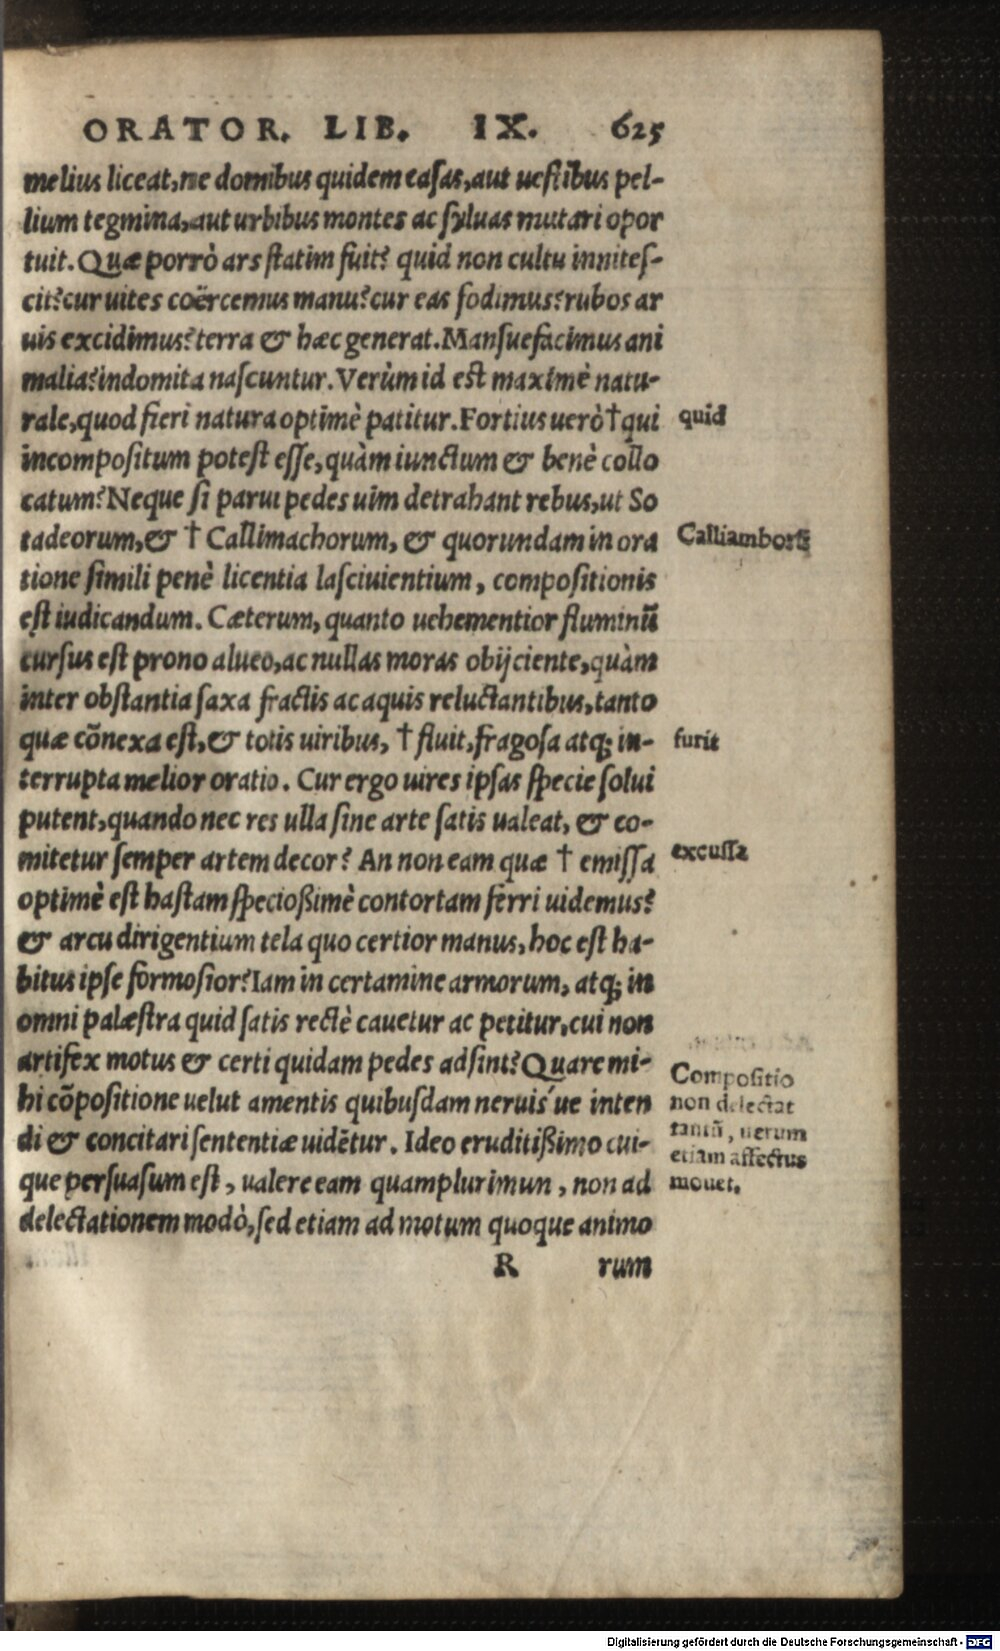 ORATOR. LIB. IX. 625
melius liceat, ne domibus quidem casas, aut uestibus pel-
lium tegmina, aut urbibus montes ac syluas mutari opor
tuit. Quæ porrò ars statim fuit? quid non cultu innites-
cit? cur uites coërcemus manu? cur eas fodimus? rubos ar
uis excidimus? terra & hæc generat. Mansuefacimus ani
malia? indomita nascuntur. Verùm id est maximè natu-
rale, quod fieri natura optimè patitur. Fortius uerò † qui
quid
incompositum potest esse, quàm iunctum & benè collo
catum? Neque si parui pedes uim detrahant rebus, ut So
tadeorum, & † Callimachorum, & quorundam in ora
Calliamborũ
tione simili penè licentia lasciuientium, compositionis
est iudicandum. Cæterum, quanto uehementior fluminũ
cursus est prono alueo, ac nullas moras obijciente, quàm
inter obstantia saxa fractis ac aquis reluctantibus, tanto
quæ cõnexa est, & totis uiribus, † fluit, fragosa atq; in-
furit
terrupta melior oratio. Cur ergo uires ipsas specie solui
putent, quando nec res ulla sine arte satis ualeat, & co-
mitetur semper artem decor? An non eam quæ † emissa
excussa
optimè est hastam speciosißimè contortam ferri uidemus?
& arcu dirigentium tela quo certior manus, hoc est ha-
bitus ipse formosior? Iam in certamine armorum, atq; in
omni palæstra quid satis rectè cauetur ac petitur, cui non
artifex motus & certi quidam pedes adsint? Quare mi-
hi cõpositione uelut amentis quibusdam neruis´ue inten
di & concitari sententiæ uidẽtur. Ideo eruditißimo cui-
que persuasum est, ualere eam quamplurimun, non ad
delectationem modò, sed etiam ad motum quoque animo
Compositio
non delectat
tantũ, uerum
etiam affectus
mouet.
R rum
Digitalisierung gefördert durch die Deutsche Forschungsgemeinschaft - DFG